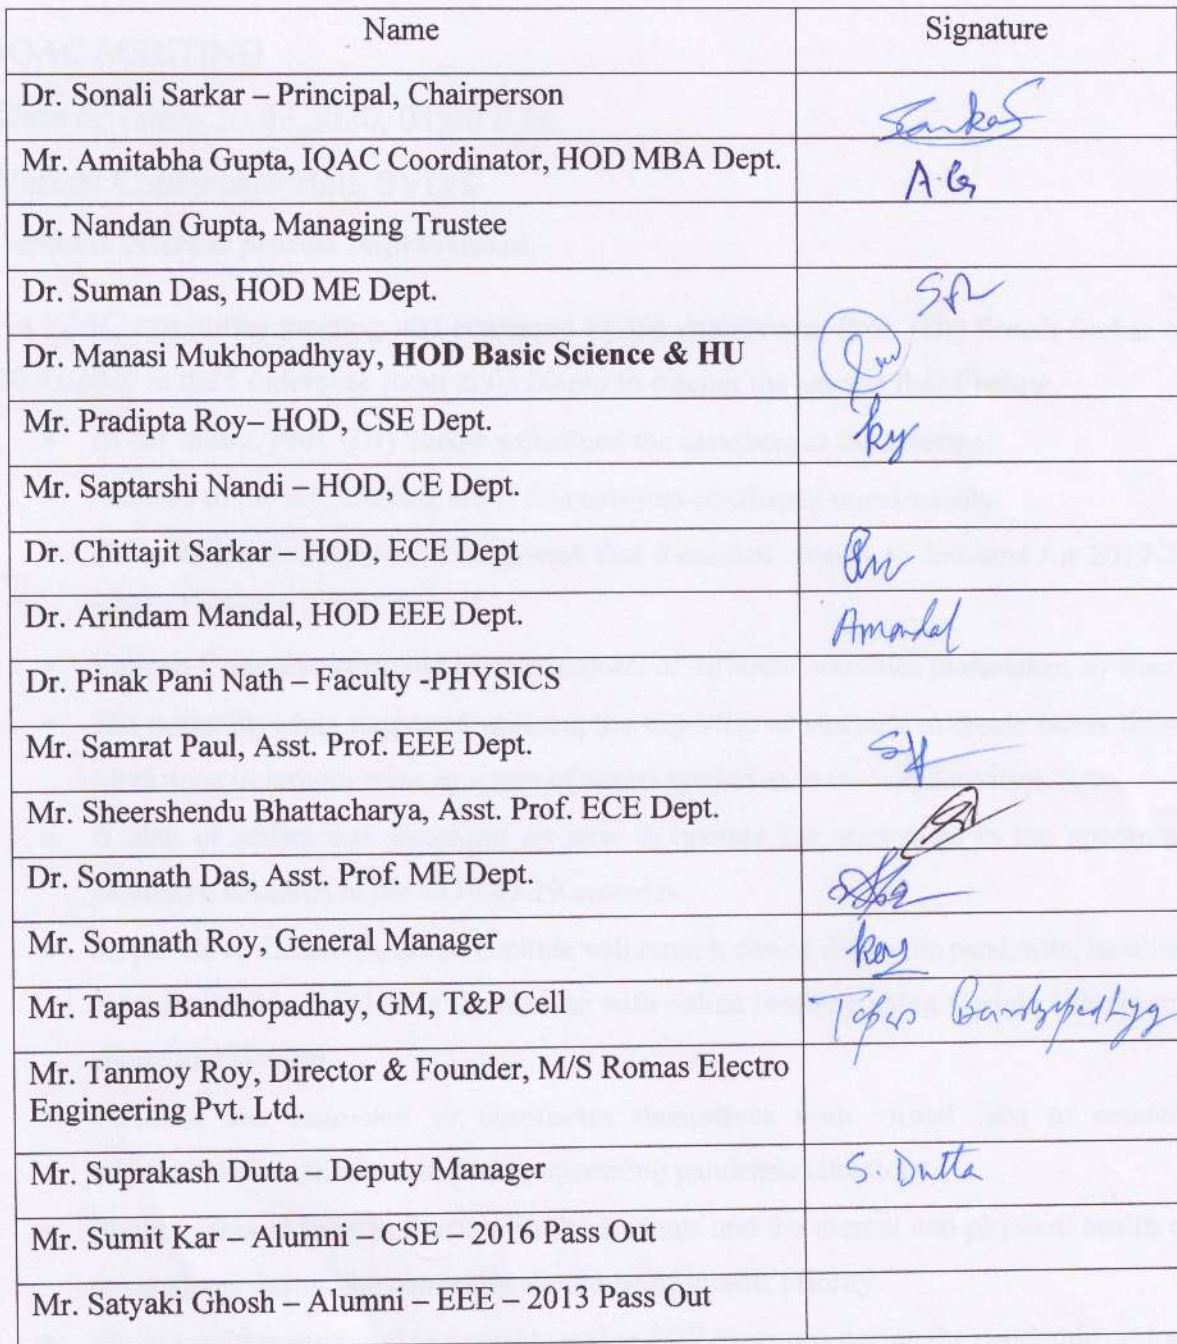 Name Signature
Dr. Sonali Sarkar – Principal, Chairperson Sarkar
Mr. Amitabha Gupta, IQAC Coordinator, HOD MBA Dept. A.G
Dr. Nandan Gupta, Managing Trustee
Dr. Suman Das, HOD ME Dept.
Dr. Manasi Mukhopadhyay, HOD Basic Science & HU
Mr. Pradipta Roy– HOD, CSE Dept.
Mr. Saptarshi Nandi – HOD, CE Dept.
Dr. Chittajit Sarkar – HOD, ECE Dept
Dr. Arindam Mandal, HOD EEE Dept. Amandal
Dr. Pinak Pani Nath – Faculty -PHYSICS
Mr. Samrat Paul, Asst. Prof. EEE Dept.
Mr. Sheershendu Bhattacharya, Asst. Prof. ECE Dept.
Dr. Somnath Das, Asst. Prof. ME Dept.
Mr. Somnath Roy, General Manager Roy
Mr. Tapas Bandhopadhay, GM, T&P Cell Tapas Bandyopadhyay
Mr. Tanmoy Roy, Director & Founder, M/S Romas Electro
Engineering Pvt. Ltd.
Mr. Suprakash Dutta – Deputy Manager S Dutta
Mr. Sumit Kar – Alumni – CSE – 2016 Pass Out
Mr. Satyaki Ghosh – Alumni – EEE – 2013 Pass Out